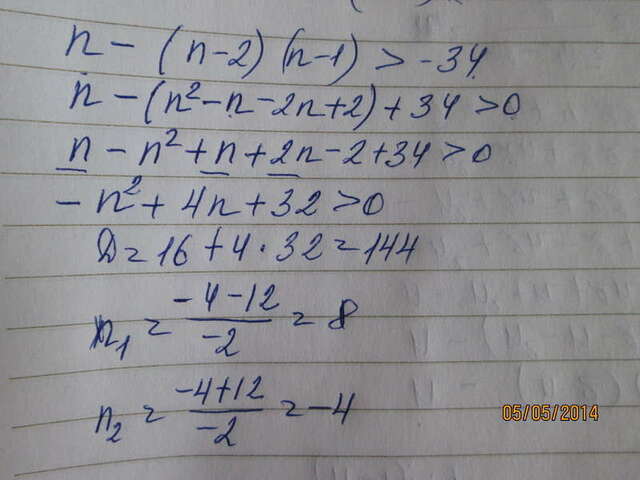 n - (n-2) (n-1) > -34
n - (n² - n - 2n + 2) + 34 > 0
n - n² + n + 2n - 2 + 34 > 0
- n² + 4n + 32 > 0
D = 16 + 4 · 32 = 144
n₁ = (-4-12)/(-2) = 8
n₂ = (-4+12)/(-2) = -4
05/05/2014